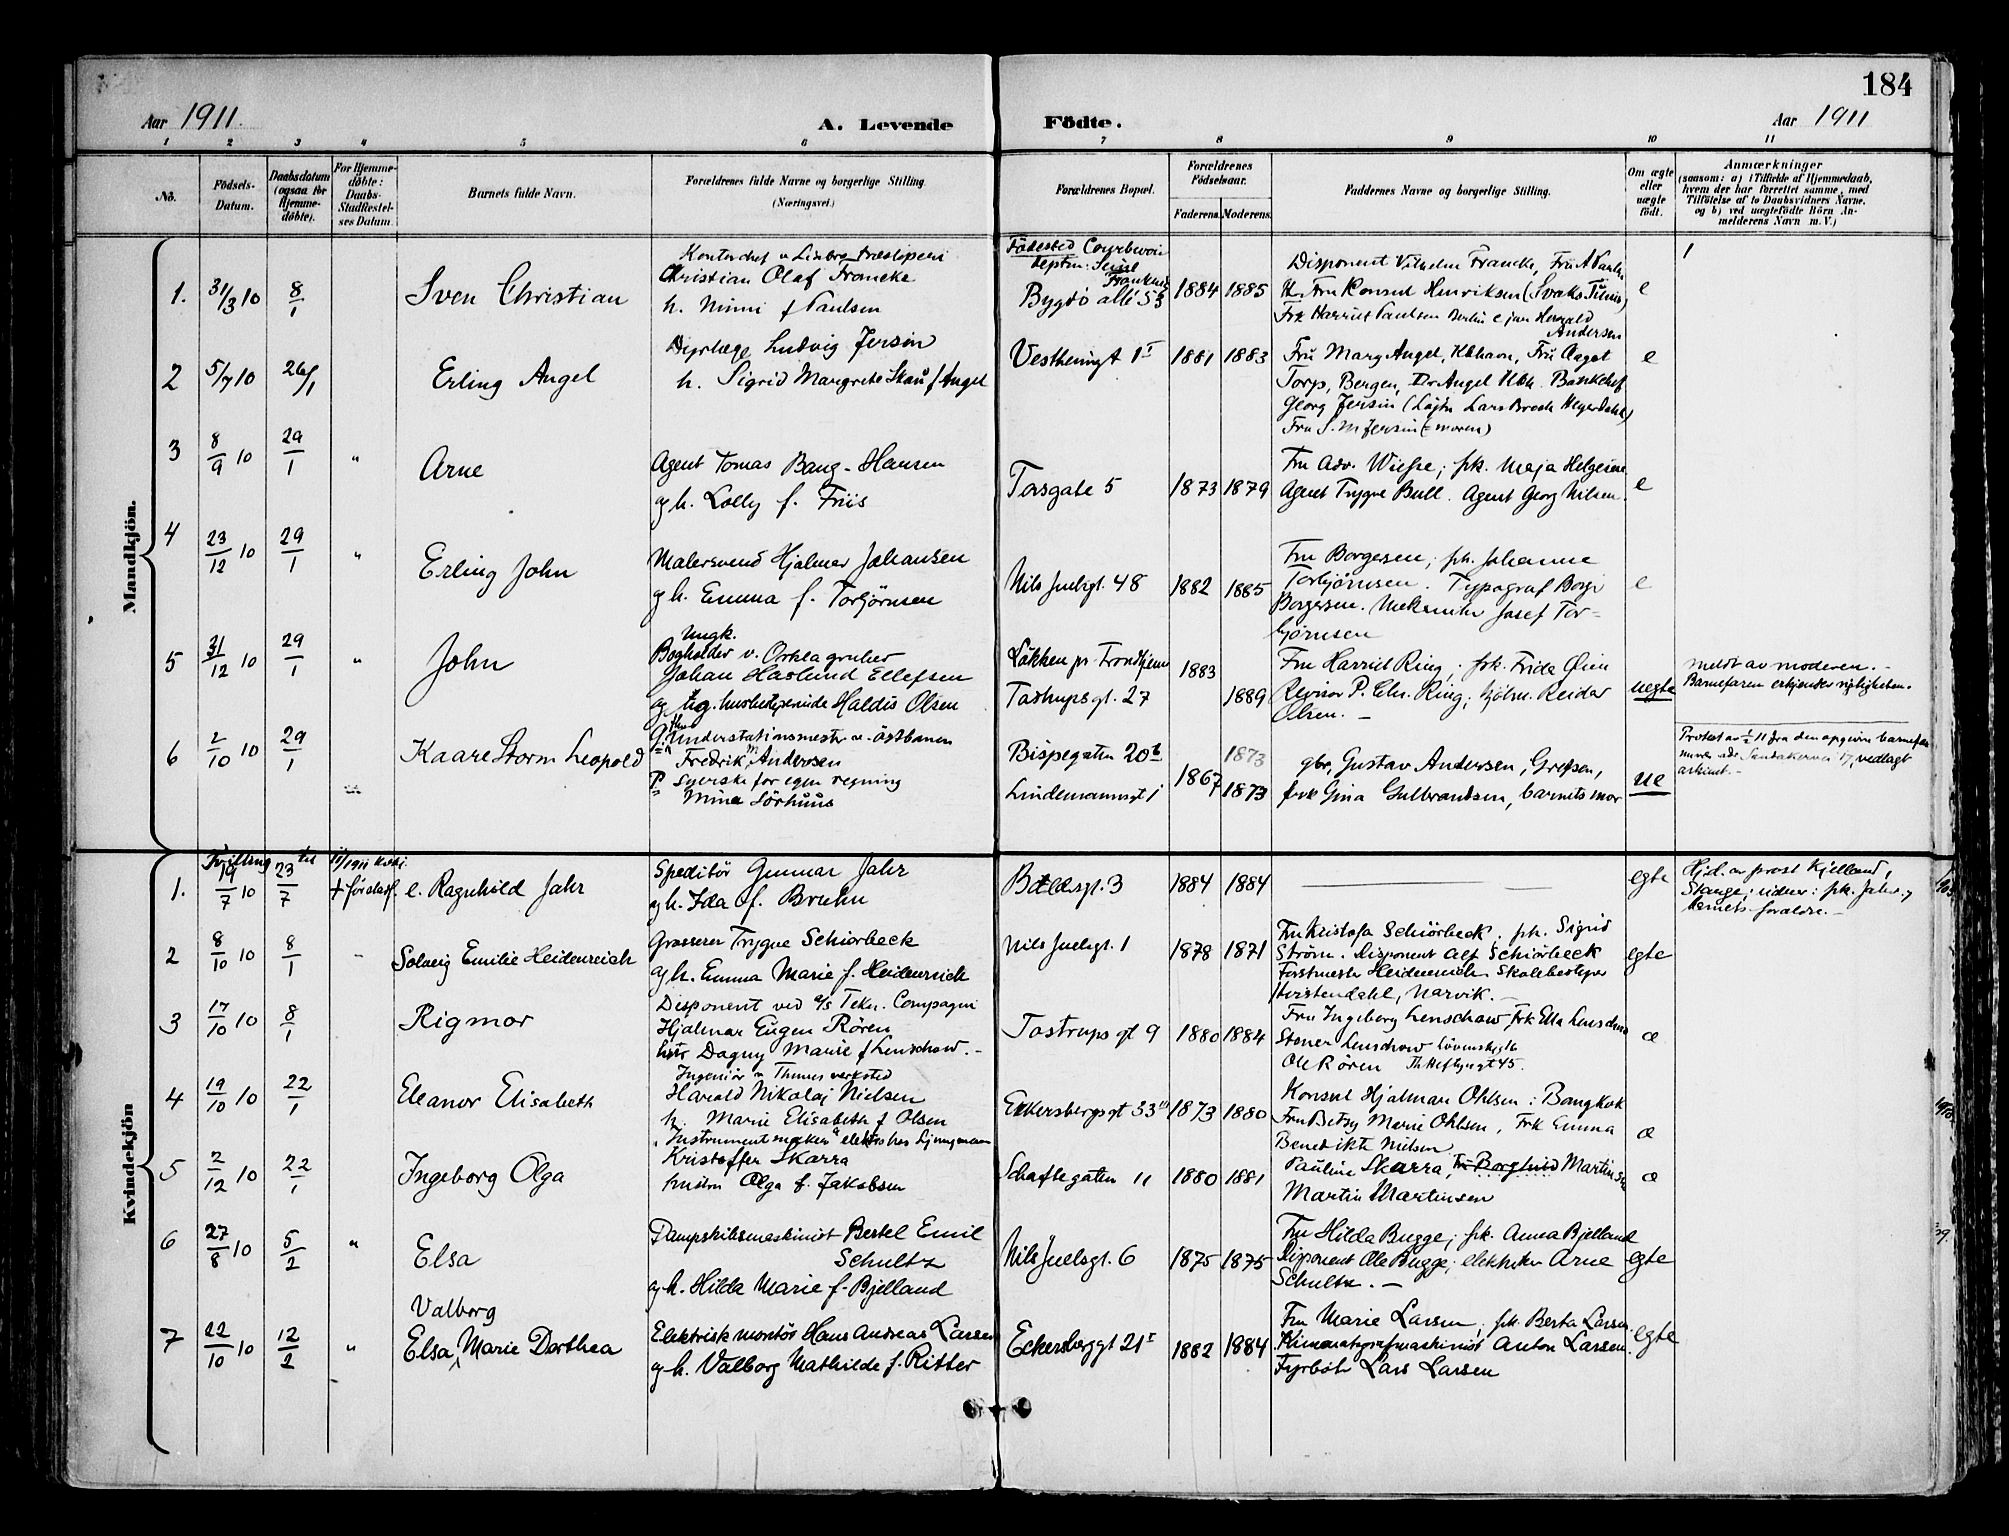 184
Aar 1911.
A. Levende
Födte.
Aar 1911
1 2 3 4 5 6 7 8 9 10 11
No.
Födsels-
Datum.
Daabsdatum
(ogsaa for
Hjemme-
döbte).
For Hjemme-
döbte:
Daabs-
Stadfæstel-
ses Datum
Barnets fulde Navn.
Forældrenes fulde Navne og borgerlige Stilling.
(Næringsvei.)
Forældrenes Bopæl.
Forældrenes
Födselsaar.
Faderens. Moderens.
Faddernes Navne og borgerlige Stilling.
Om ægte
eller
uægte
födt.
Anmærkninger
(saasom: a) i Tilfælde af Hjemmedaab,
hvem der har forrettet samme, med
Tilföielse af to Daabsvidners Navne.
og b) ved uægtefödte Börn An-
melderens Navn m. V.)
Mandkjön.
1. 31/3 10 8/1 Sven Christian
Christian Olaf Francke
h. Minni f Paulsen
Födested
Bygdö allé 5
1884 1885
Disponent Vilhelm Francke, Fru A Paulsen
Fru Konsul Henriksen
Frk Harriet Paulsen Berlin
Andersen
e
2 5/7 10 26/1 Erling Angel
Dyrlæge Ludvig Jersin
h. Sigrid Margrete Skau f Angel
Vestheimgt 1 I
1881 1883
Fru Mary Angel, Kbhavn, Fru Aagot
Torp, Bergen, Dr Angel Kbh. Bankchef
Georg Jersin (Löjtn Lars Broch Heyerdahl)
Fru S. M Jersin (= moren)
e
3 8/9 10 29/1 " Arne
Agent Tomas Bang-Hansen
og h. Lolly f. Friis
Torsgate 5
1873 1879
Fru Adv. Wiese; frk. Maja Helgesen
Agent Trygve Bull. Agent Georg Nilsen.
e
4 23/12 10 29/1 " Erling John
Malersvend Hjalmar Johansen
og h. Emma f. Torbjörnsen
Nils Juelsgt. 48
1882 1885
Fru Borgesen; frk. Johanne
Torbjörnsen. Typograf Borge
Borgersen. Mekaniker Josef Tor-
björnsen
e
5 31/12 10 29/1 " John
Ungk.
Bogholder v. Orkla gruber
Johan Haslund Ellefsen
og ug. husbestyrerinde Haldis Olsen
Løkken pr. Trondhjem
Tostrupsgt. 27
1883
1889
Fru Harriet Ring; frk. Frida Øien
Revisor P. Chr. Ring; Hjalm. Reidar
Olsen. -
uegte
Meldt av moderen. -
Barnefaren erkjender rigtigheten.
6 2/10 10 29/1 Kaare Storm Leopold
Understationsmester v. Östbanen
Fredrik M Anderssen
P Syerske for egen regning
Mina Sörhuus
Bispegaten 20 b
Lindemannsgt 1
1873
1867 1873
gbr. Gustav Andersen, Grefsen,
frk Gina Gulbrandsen, barnets mor
ue
Protest av 1/2 11 fra den opgivne barnefar
vedlagt
Kvindekjön
1. Tvilling 19/7 10 23/7 Ragnhild Jahr
Speditör Gunnar Jahr
og h. Ida f. Bruhn
Baldersgt. 3
1884 1884
egte
Hjd. av prost Kjelland,
Stange; vidner: frk. Jahr og
barnets forældre. -
2 8/10 10 8/1 - Solveig Emilie Heidenreich
Grosserer Trygve Schiörbeck
og h. Emma Marie f. Heidenreich
Nils Juelsgt. 1
1878 1871
Fru Kristofa Schiörbeck. frk. Sigrid
Ström. Disponent Alf Schiörbeck
Forstmester Heidenreich Skolebestyrer
Kristendahl, Narvik. -
egte
3 17/10 10 8/1 Rigmor
Disponent ved A/S Tekn. Compagni
Hjalmar Eugen Rören
hstr Dagny Marie f Lenschow. -
Tostrups gt 9
1880 1884
Fru Ingeborg Lenschow frk Ella Lenschow
Stener Lenschow Lövenskj. 16
Ole Rören Th Heftyesgt 45.
æ
4 19/10 10 22/1 Eleanor Elisabeth
Ingeniör v Thunes verksted
Harald Nikolaj Nielsen
h. Marie Elisabeth f Olsen
Eckersbergsgt 33 III
1873 1880
Konsul Hjalmar Ohlsen i Bangkok
Fru Betsy Marie Ohlsen, Frk Emma
Benedikte Nielsen
æ
5 2/12 10 22/1 Ingeborg Olga
Instrumentmaker
Kristoffer Skarra
hustru Olga f. Jakobsen
Schaftegaten 11
1880 1881
Pauline Skarra, Fru Borghild Martinsen
Martin Martinsen
æ
6 27/8 10 5/2 " Elsa
Dampskibsmaskinist Bertel Emil
Schultz
og h. Hilda Marie f. Bjelland
Nils Juelsgt. 6
1875 1875
Fru Hilda Bugge; frk. Anna Bjelland
Disponent Ole Bugge; elektriker Arne
Schultz. -
egte
7 22/10 10 12/2 " Valborg
Elsa Marie Dorthea
Elektrisk montör Hans Andreas Larsen
og h. Valborg Mathilde f. Ritter
Eckersberggt 21 I
1882 1884
Fru Marie Larsen; frk. Berta Larsen
Kinematografmaskinist Anton Larsen.
Fyrböter Lars Larsen
egte